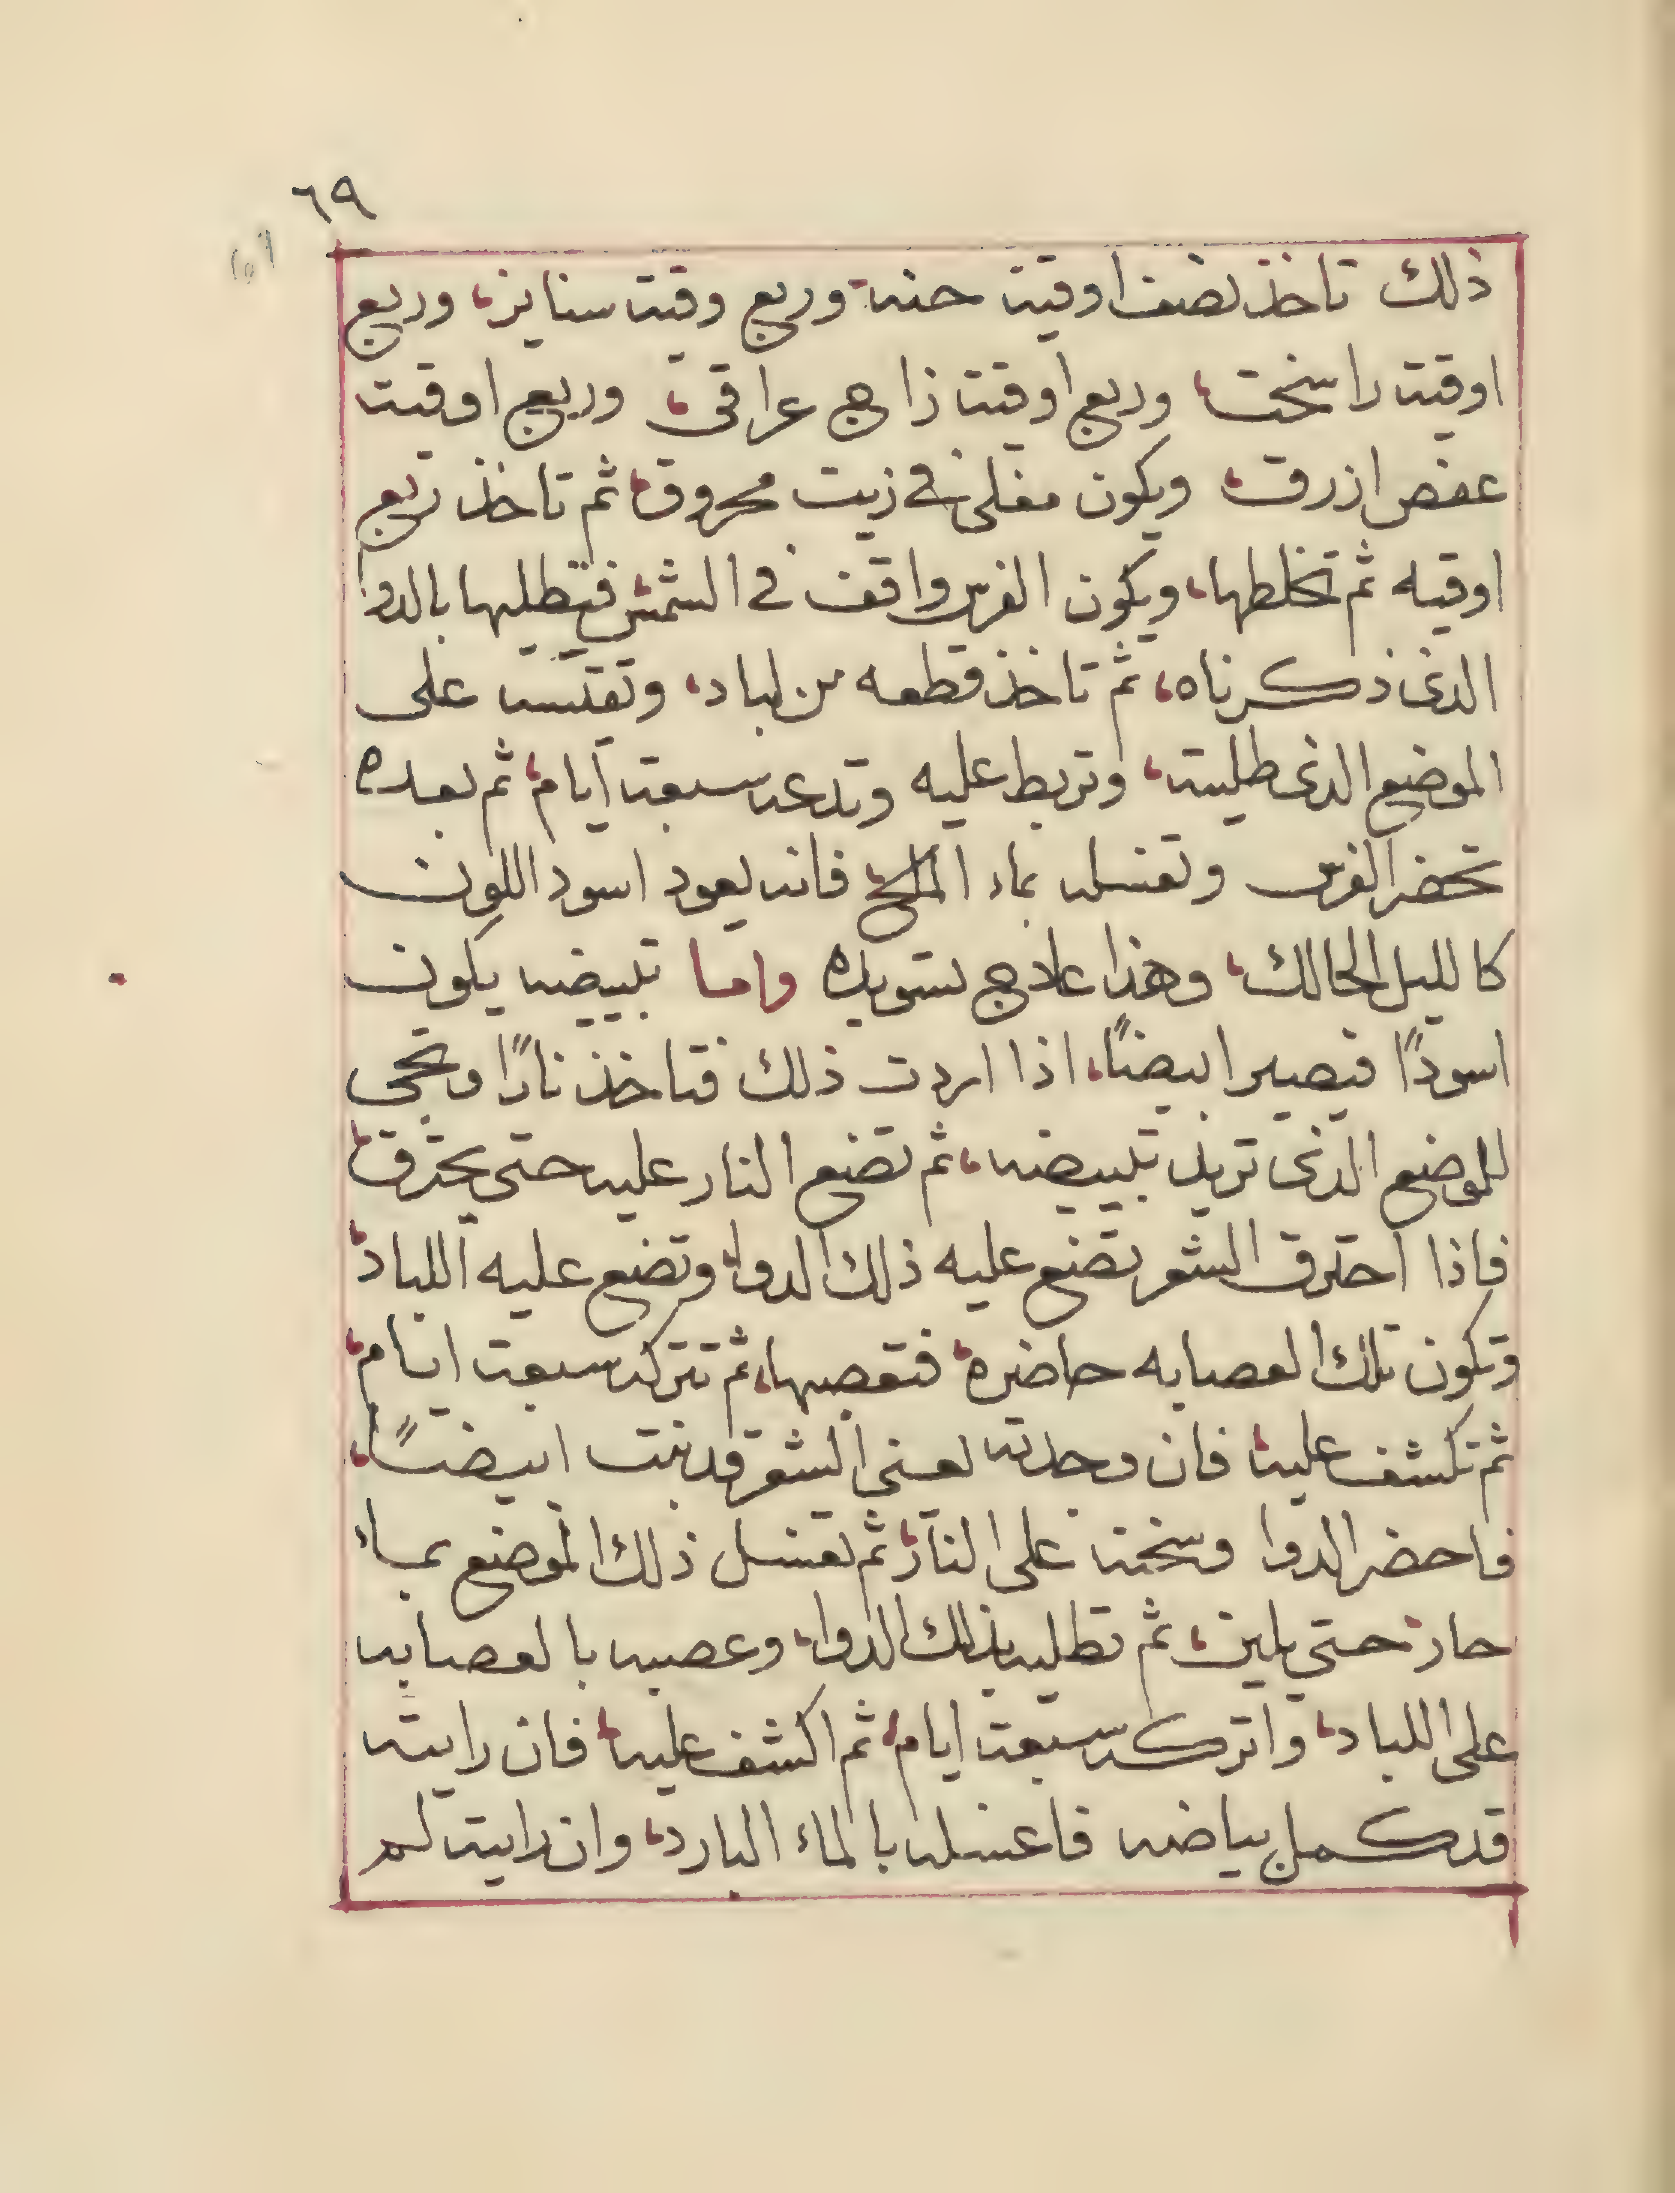 ٦٩
ذلك تاخذ نصف اوقيت حنه وربع وقيت سنايز، وربع
اوقيت راسخت، وربع اوقيت زاج عراقى، وربع اوقيت
عفص ازرق، ويكون مغلى فى زيت محروق، ثم تاخذ ربع
اوقيه ثم تخلطها، ويكون الفرس واقف فى الشمس فتطليها بالدوا
الذى ذكرناه، ثم تاخذ قطعه من لباد، على
الموضع الذى طليته، وتربط عليه وتدعه سبعت ايام، ثم بعده
تحضر الفرس وتغسله بماء الملح، فانه يعود اسود اللون
كالليل الحالك، وهذا علاج تسويده واما تبييضه يكون
اسودًا فيصير ابيضًا، اذا اردت ذلك فتاخذ نارًا وتجى
للموضع الذى تريد تبييضه، ثم تضع النار عليه حتى يحترق،
فاذا احترق الشعر تضع عليه ذلك الدوا، وتضع عليه اللباد،
وتكون تلك العصابه حاضره، فتعصبها، ثم تتركه سبعت ايام،
ثم تكشف عليه، فان وجدته يعنى الشعر قد نبت ابيضًا،
فاحضر الدوا وسخنه على النار، ثم تغسل ذلك الموضع بماء
حار حتى يلين، ثم تطليه بذلك الدوا، وعصبه بالعصابه
على اللباد، واتركه سبعت ايام، ثم اكشف عليه، فان رايته
قد كمل بياضه فاغسله بالماء البارد، وان رايته لم